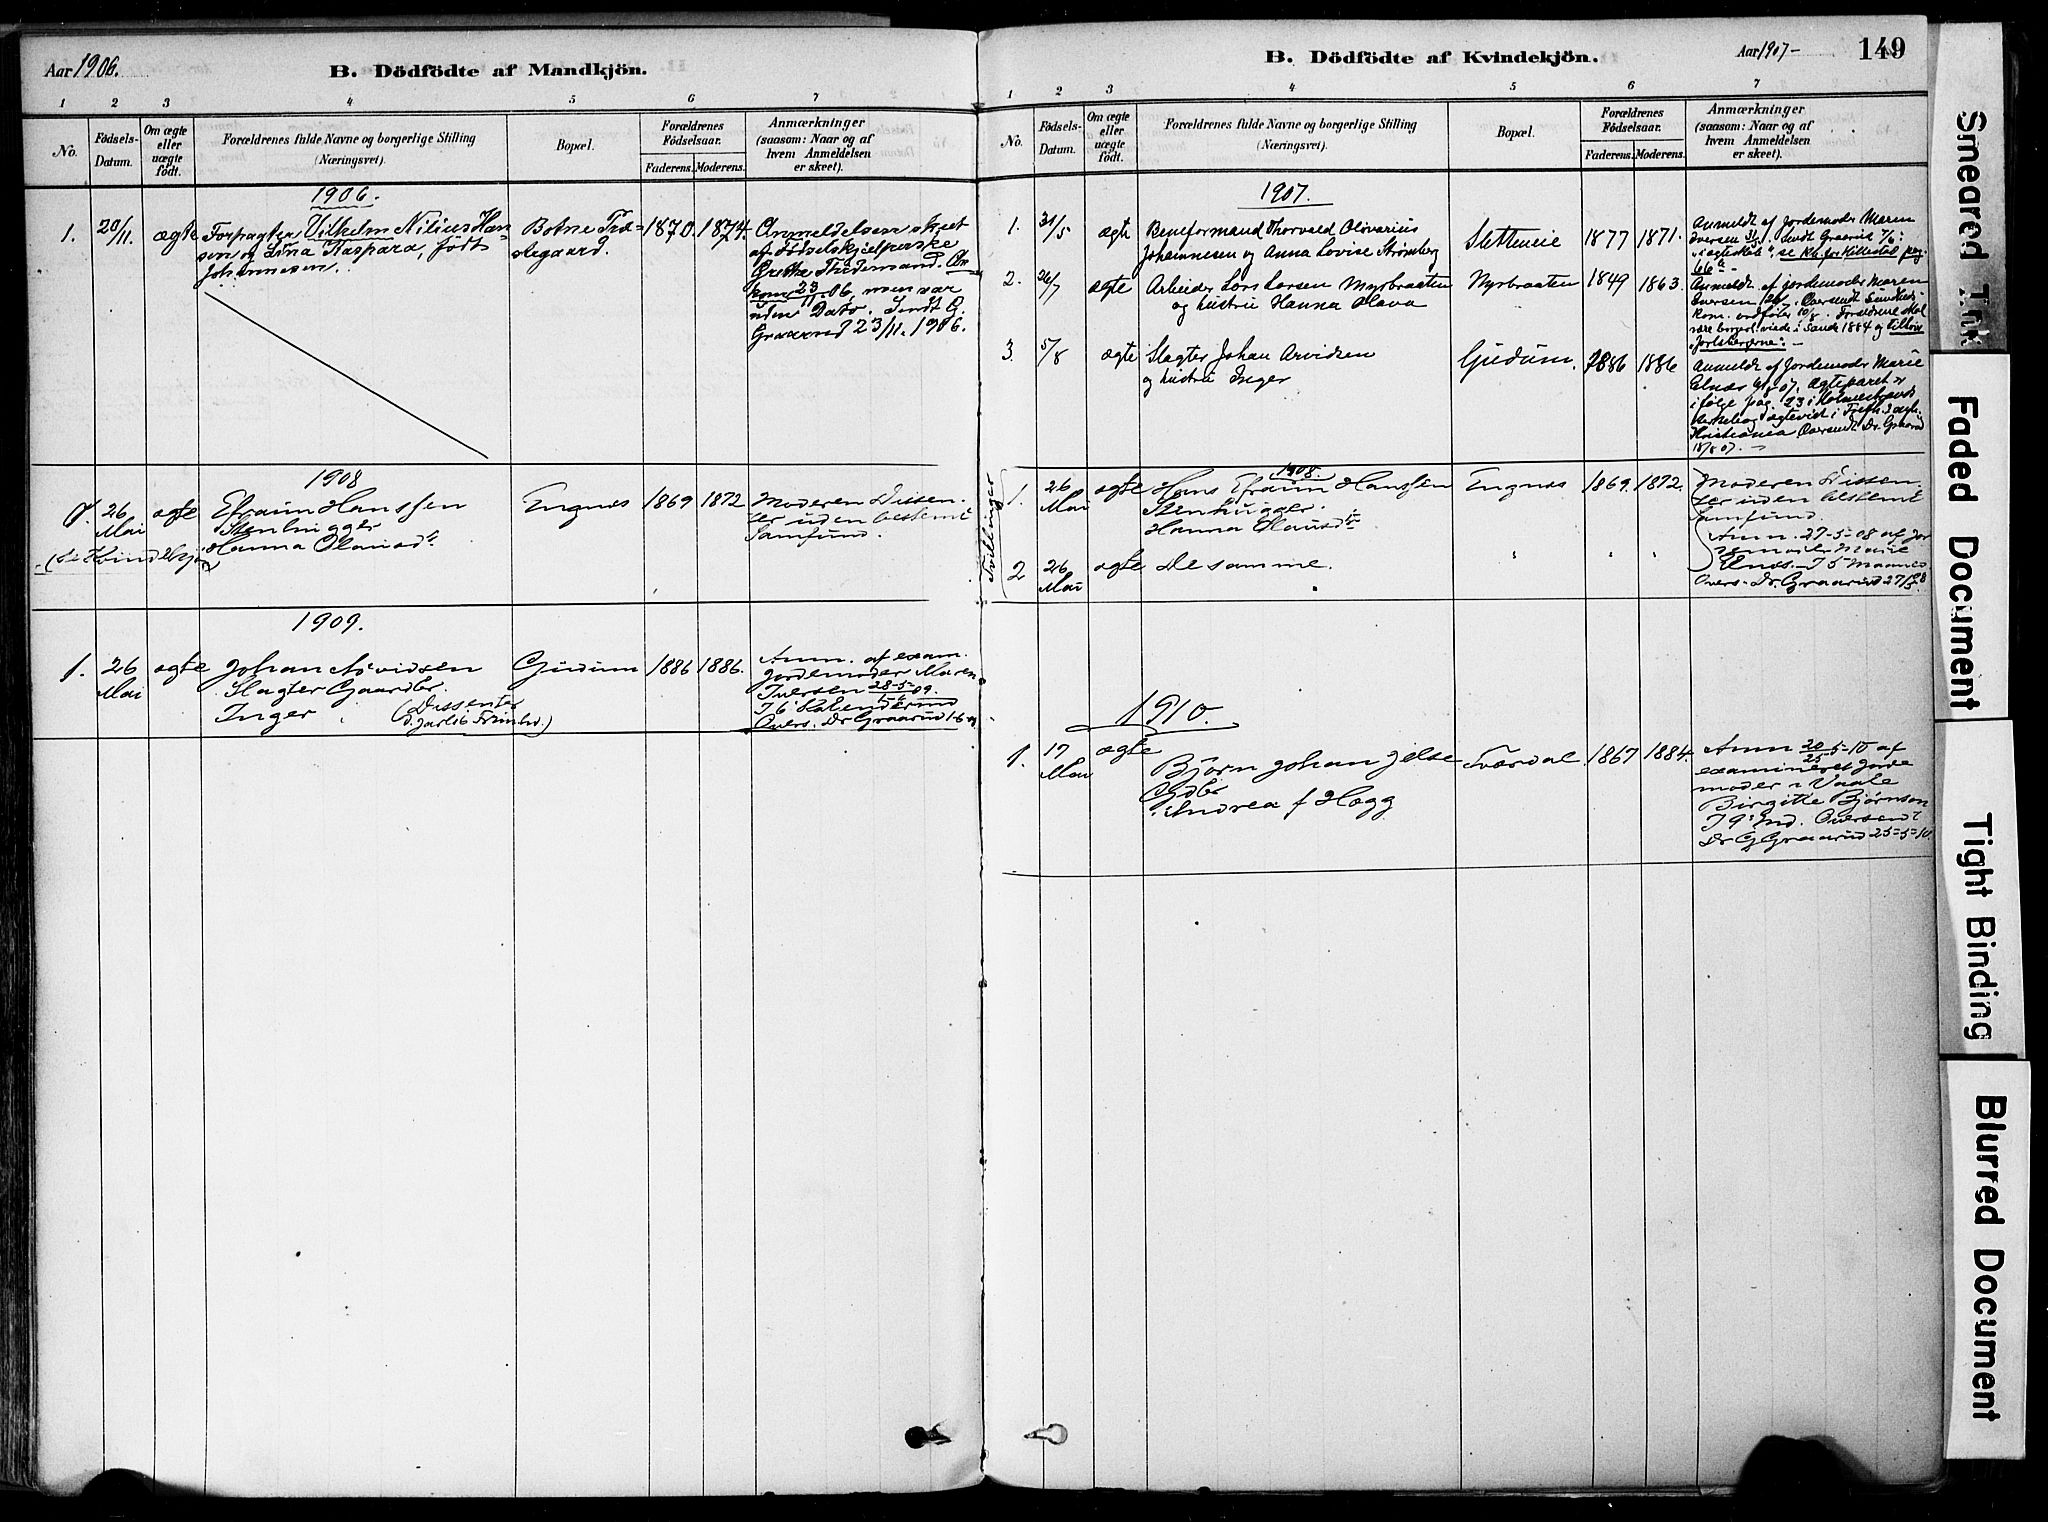 Aar 1906.
B. Dödfödte af Mandkjön.
1 2 3 4 5 6 7
No.
Födsels-
Datum.
Om ægte
eller
uægte
födt.
Forældrenes fulde Navne og borgerlige Stilling
(Næringsvei).
Bopæl.
Forældrenes
Födselsaar.
Faderens. Moderens.
Anmærkninger
(saasom: Naar og af
hvem Anmeldelsen
er skeet).
1906.
1. 20/11. ægte
Forpagter Vilhelm Nilius Han-
sen og Lina Kaspara, födt
Johannesen.
Botne Præ-
stegaard.
1870. 1874.
Anmeldelsen skeet
af fødselshjelperske
Grethe Thidemand. An-
kom 23/11 06, men var
uden Dato. Sendt G.
Graarud 23/11. 1906.
1908
1. 26 Mai ægte
Efraim Hanssen
Stenhugger
Hanna Olausdtr
Engnes 1869 1872
Moderen Dissen-
ter uden bestemt
Samfund.
(Se Kvindekjøn)
1909.
1. 26 Mai ægte
Johan Arvidsen
Slagter Gaardbr.
Inger (Dissenter
Jarlsb. Frimh.)
Gudum 1886 1886.
Anm. af exam.
Jordemoder Maren
Iversen 28-5-09.
Overs. Dr Graarud 1-6-09
B. Dödfödte af Kvindekjön.
Aar 1907- 149
1 2 3 4 5 6 7
No.
Födsels-
Datum.
Om ægte
eller
uægte
födt.
Forældrenes fulde Navne og borgerlige Stilling
(Næringsvei).
Bopæl.
Forældrenes
Födselsaar.
Faderens. Moderens.
Anmærkninger
(saasom: Naar og af
hvem Anmeldelsen
er skeet).
1907.
1. 31/5 ægte
Baneformand Thorvald Olovarius
Johannesen og Anna Lovise Strømberg
Sletteveie 1877 1871.
Anmeldt af Jordemoder Maren
Iversen 31/5. Sendt Graarud 7/6:
2. 26/7 ægte
Arbeider Lars Larsen Myrbraaten
og hustru Hanna Olava
Myrbraaten 1849 1863.
Anmeldt af jordemoder Maren
Iversen
viede i Sande 1884
3. 5/8 ægte
Slagter Johan Arvidsen
og hustru Inger
Gudum. 1886 1886
Anmeldt af Jordemoder Marie
Ægteparet er
ifølge pag. 23 i Holmestrands
Kristiania Oversendt Dr. Graarud
18/8 07. —
1908.
Tvillinger
1. 26 Mai ægte
Hans Efraim Hanssen
Stenhugger.
Hanna Olausdtr
Engnes 1869. 1872.
Moderen Dissen-
ter uden bestemt
Samfund.
Anm. 27-5-08 af Jor
demoder Marie
Overs. Dr. Graarud 27/5 08
2 26 Mai ægte De samme. " " "
1910.
1. 17 Mai ægte
Bjørn Johan Jelse
Gdbr
Andrea f Hogg
Tverdal 1867 1884.
Anm 20-5-10 af
examineret Jorde
moder i Vaale
Birgitte Bjørnson
Oversendt
Dr G Graarud 25-5-10
Smeared Ink
Faded Document
Tight Binding
Blurred Document